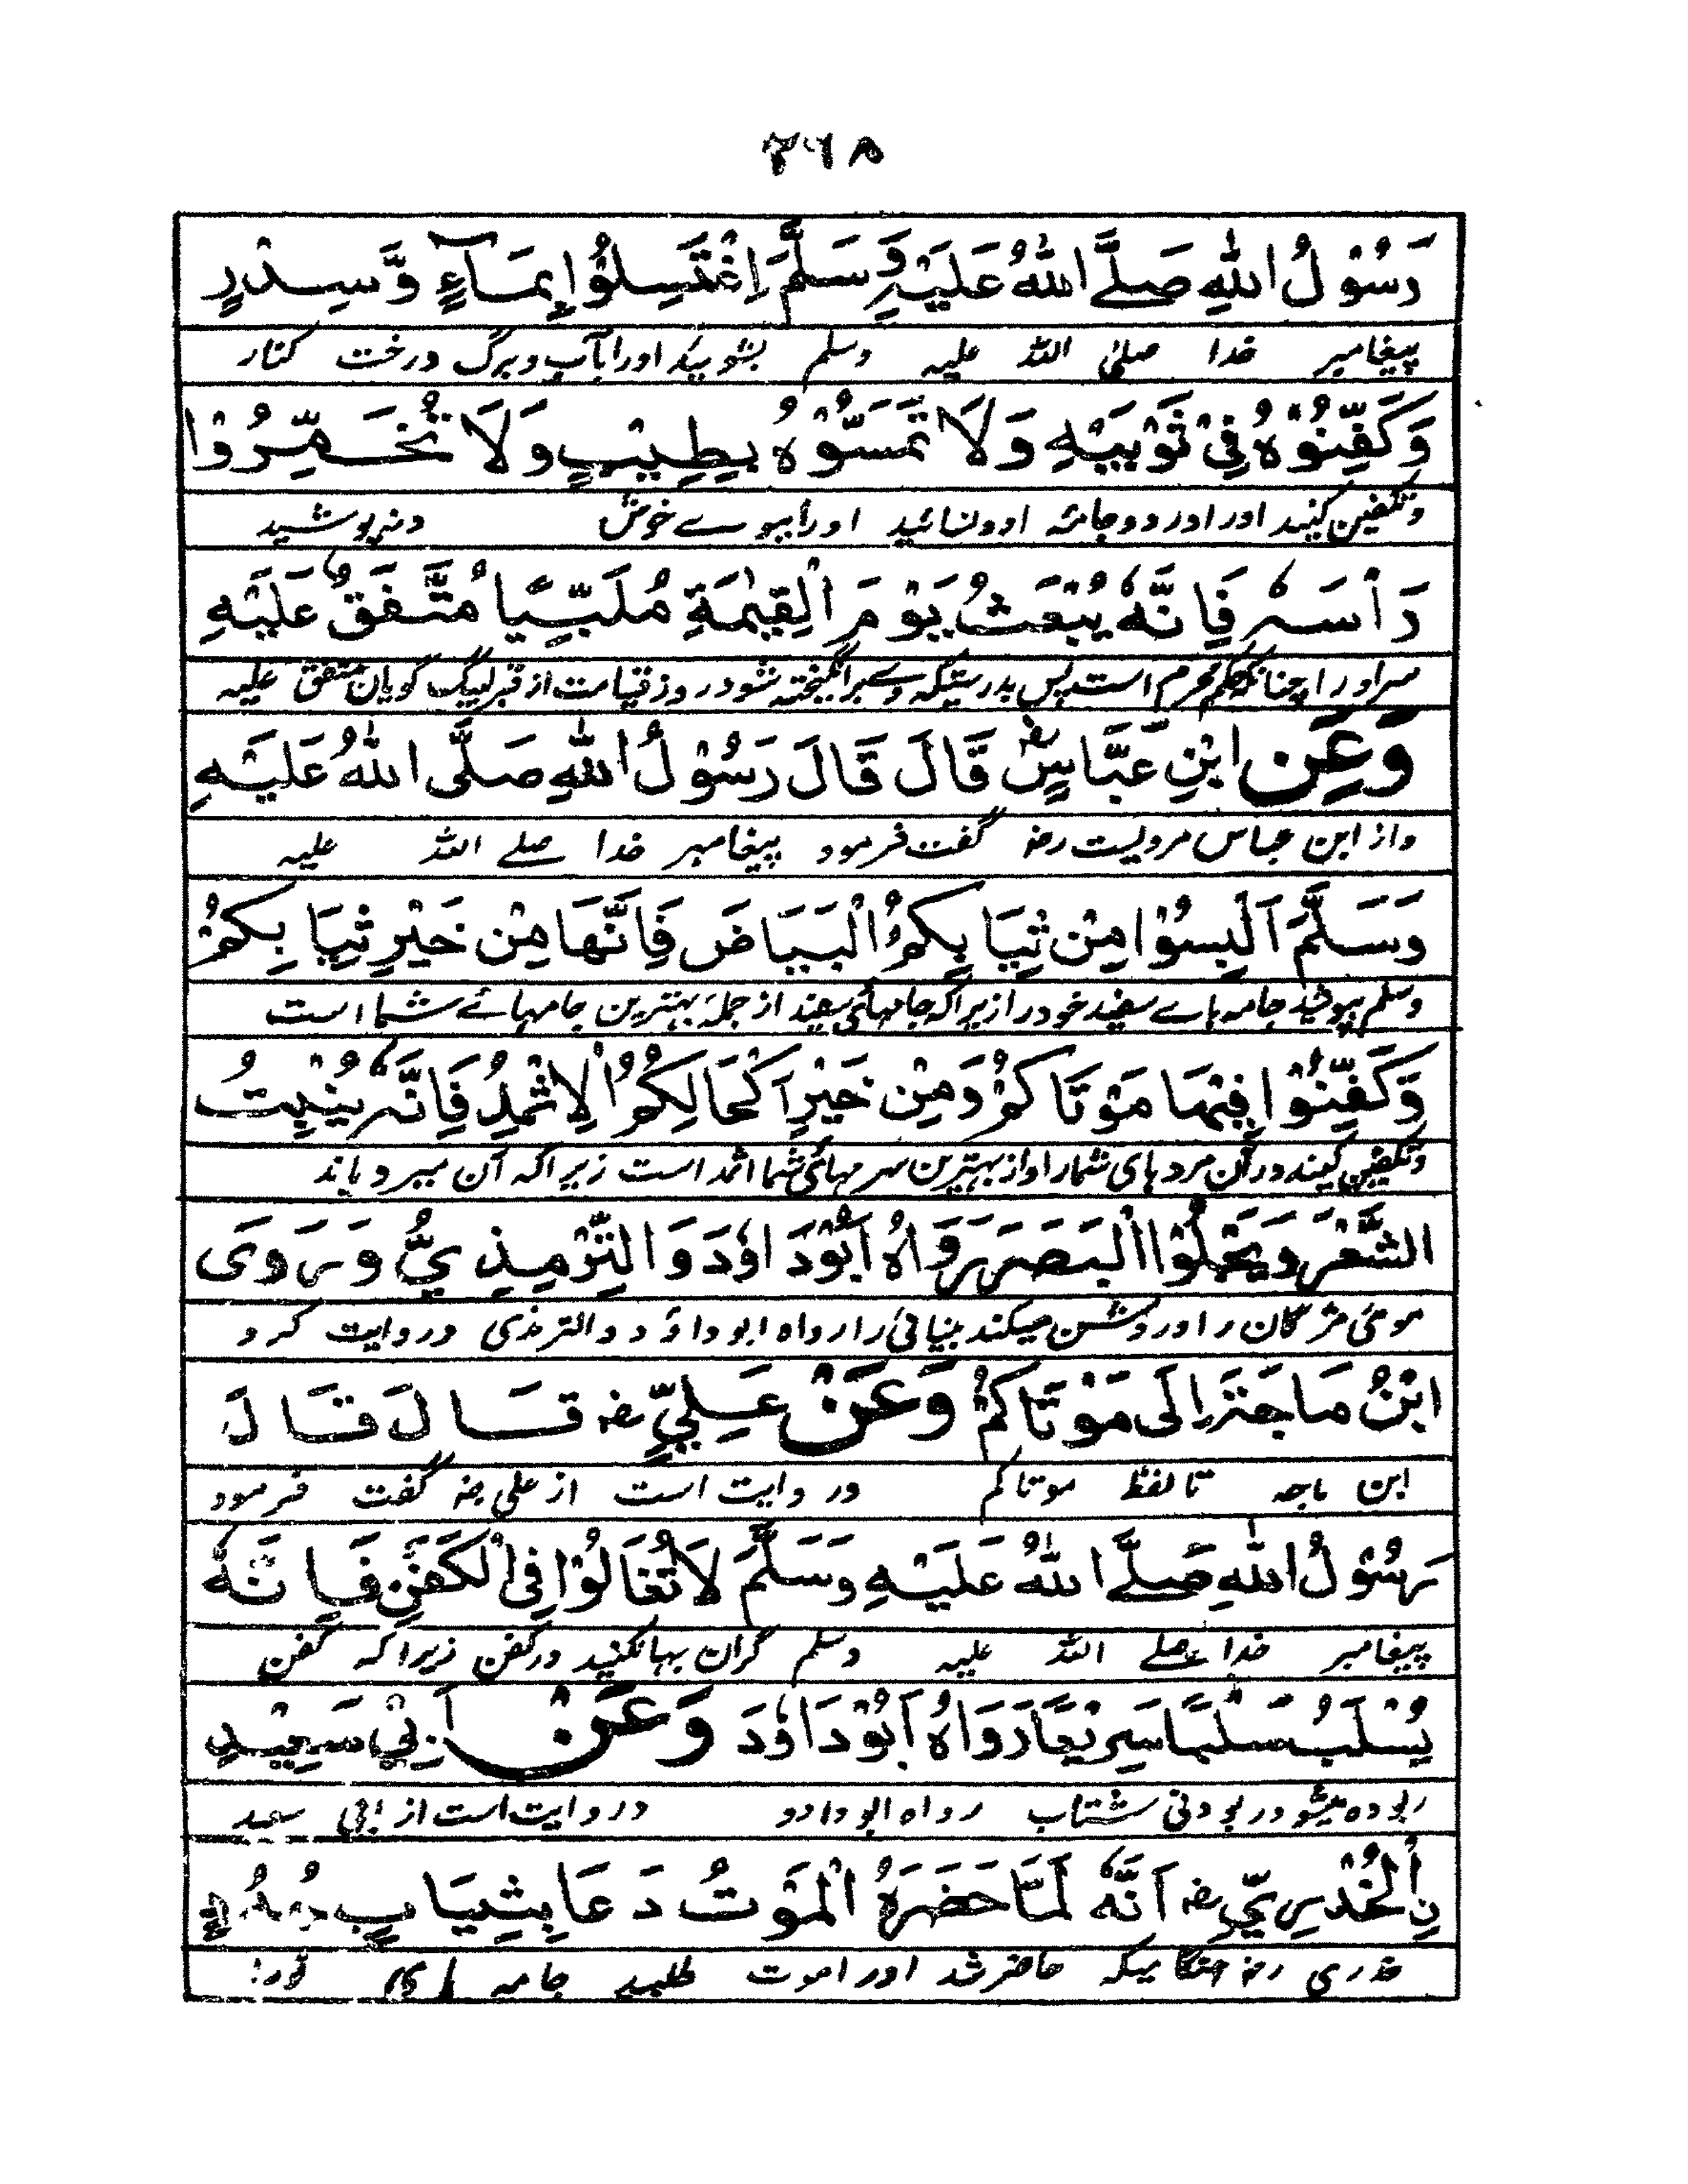 ۲۶۸
رَسُوْلُ اللهِ صَلَّے اللهُ عَلَيْهِ وَسَلَّمَ اِغْتَسِلُوْا بِمَآءٍ وَّسِدْرٍ
پیغامبر خدا صلی اللہ علیہ وسلم بشوئید اورا بآب وبرگ درخت کنار
وَكَفِّنُوْهُ فِيْ ثَوْبَيْهِ وَلَا تَمَسُّوْهُ بِطِيْبٍ وَلَا تُخَمِّرُوْا
وتکفین کنید اورا در دو جامئہ او ورسائید اورا ببوے خوش ونہ پوشید
رَأْسَهٗ فَاِنَّهٗ يُبْعَثُ يَوْمَ الْقِيٰمَةِ مُلَبِّيًا مُتَّفَقٌ عَلَيْهِ
سر اورا چنانکہ محرم است پس بدرستیکہ وے برانگیختہ شود روز قیامت از قبر لبیک گویان متفق علیہ
وَعَنِ ابْنِ عَبَّاسٍ رضـ قَالَ قَالَ رَسُوْلُ اللهِ صَلَّى اللهُ عَلَيْهِ
واز ابن عباس مرویست رضہ گفت فرمود پیغامبر خدا صلے اللہ علیہ
وَسَلَّمَ اَلْبِسُوْا مِنْ ثِيَابِكُمُ الْبَيَاضَ فَاِنَّهَا مِنْ خَيْرِ ثِيَابِكُمْ
وسلم بپوشید جامہ ہاے سفید خود را زیرا کہ جامہائی سفید از جملۂ بہترین جامہائے شما است
وَكَفِّنُوْا فِيْهَا مَوْتَاكُمْ وَمِنْ خَيْرِ اَكْحَالِكُمُ الْاِثْمِدُ فَاِنَّهٗ يُنْبِتُ
وتکفین کنید در آن مردہای شمارا واز بہترین سرمہائی شما اثمد است زیرا کہ آن میرویاند
الشَّعْرَ وَيَجْلُوْا الْبَصَرَ رَوَاهُ اَبُوْدَاوٗدَ وَالتِّرْمِذِيُّ وَرَوَى
موئی مژگان را وروشن میکند بینائی را رواہ ابوداؤد والترمذی وروایت کرد
ابْنُ مَاجَةَ اِلَى مَوْتَاكُمْ وَعَنْ عَلِيٍّ رضہ قَالَ قَالَ
ابن ماجہ تا لفظ موتاکم وروایت است از علی رضہ گفت فرمود
رَسُوْلُ اللهِ صَلَّے اللهُ عَلَيْهِ وَسَلَّمَ لَا تُغَالُوْا فِي الْكَفَنِ فَاِنَّهٗ
پیغامبر خدا صلے اللہ علیہ وسلم گران بہا نکنید در کفن زیرا کہ کفن
يُسْلَبُ سَلْبًا سَرِيْعًا رَوَاهُ اَبُوْدَاوٗدَ وَعَنْ اَبِيْ سَعِيْدٍ
ربودہ میشود ربودنی شتاب رواہ ابوداود وروایت است از ابی سعید
نِ الْخُدْرِيِّ رضہ اَنَّهٗ لَمَّا حَضَرَهُ الْمَوْتُ دَعَا بِثِيَابٍ جُدُدٍ
خدری رضہ ہنگامیکہ حاضر شد اورا موت طلبید جامہ